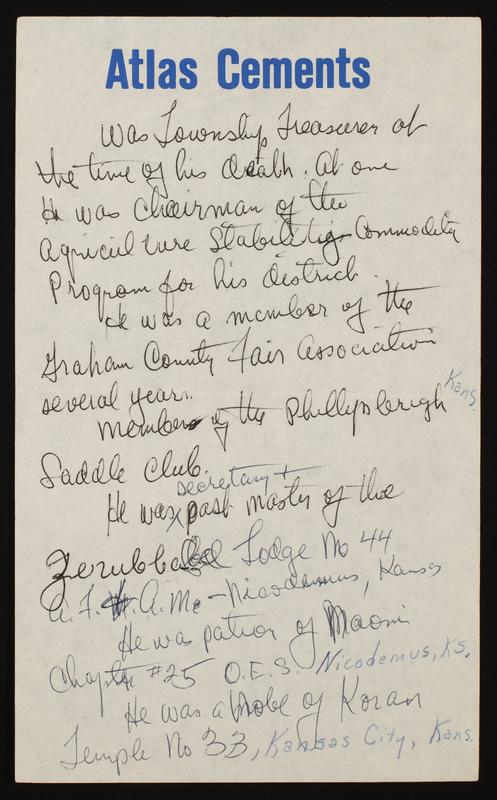 Atlas Cements
was Township Treasurer at
the time of his death. At one
He was chairman of the
Agriculture Stabilitig Commodity
Program for his district.
He was a member of the
Graham County Fair Association
several years.
Member of the Phillypsbrigh Kans.
Saddle Club.
secretary +
He was past master of the
Zerubbabel Lodge No 44
A. F. & A. M. - Nicodemus, Kansas
He was patron of Naomi
Chapter #25 O.E.S. Nicodemus, KS.
He was a Noble of Koran
Temple No 33, Kansas City, Kans.